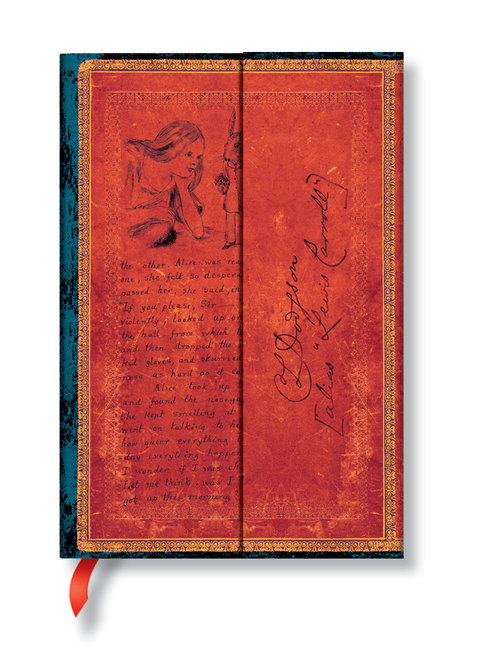 the other Alice was rea
one, she felt so despera
passed her, she said, in
"If you please, Sir
violently, looked up on
the hall from which t
and then dropped the
kid gloves, and skurried
as hard as it co
Alice took up t
and found the nosega
she kept smelling at
went on talking to he
how queer everything
day everything happen
I wonder if I was ch
let me think: was I
got up this morning
CL Dodgson
[alias "Lewis Carroll"]